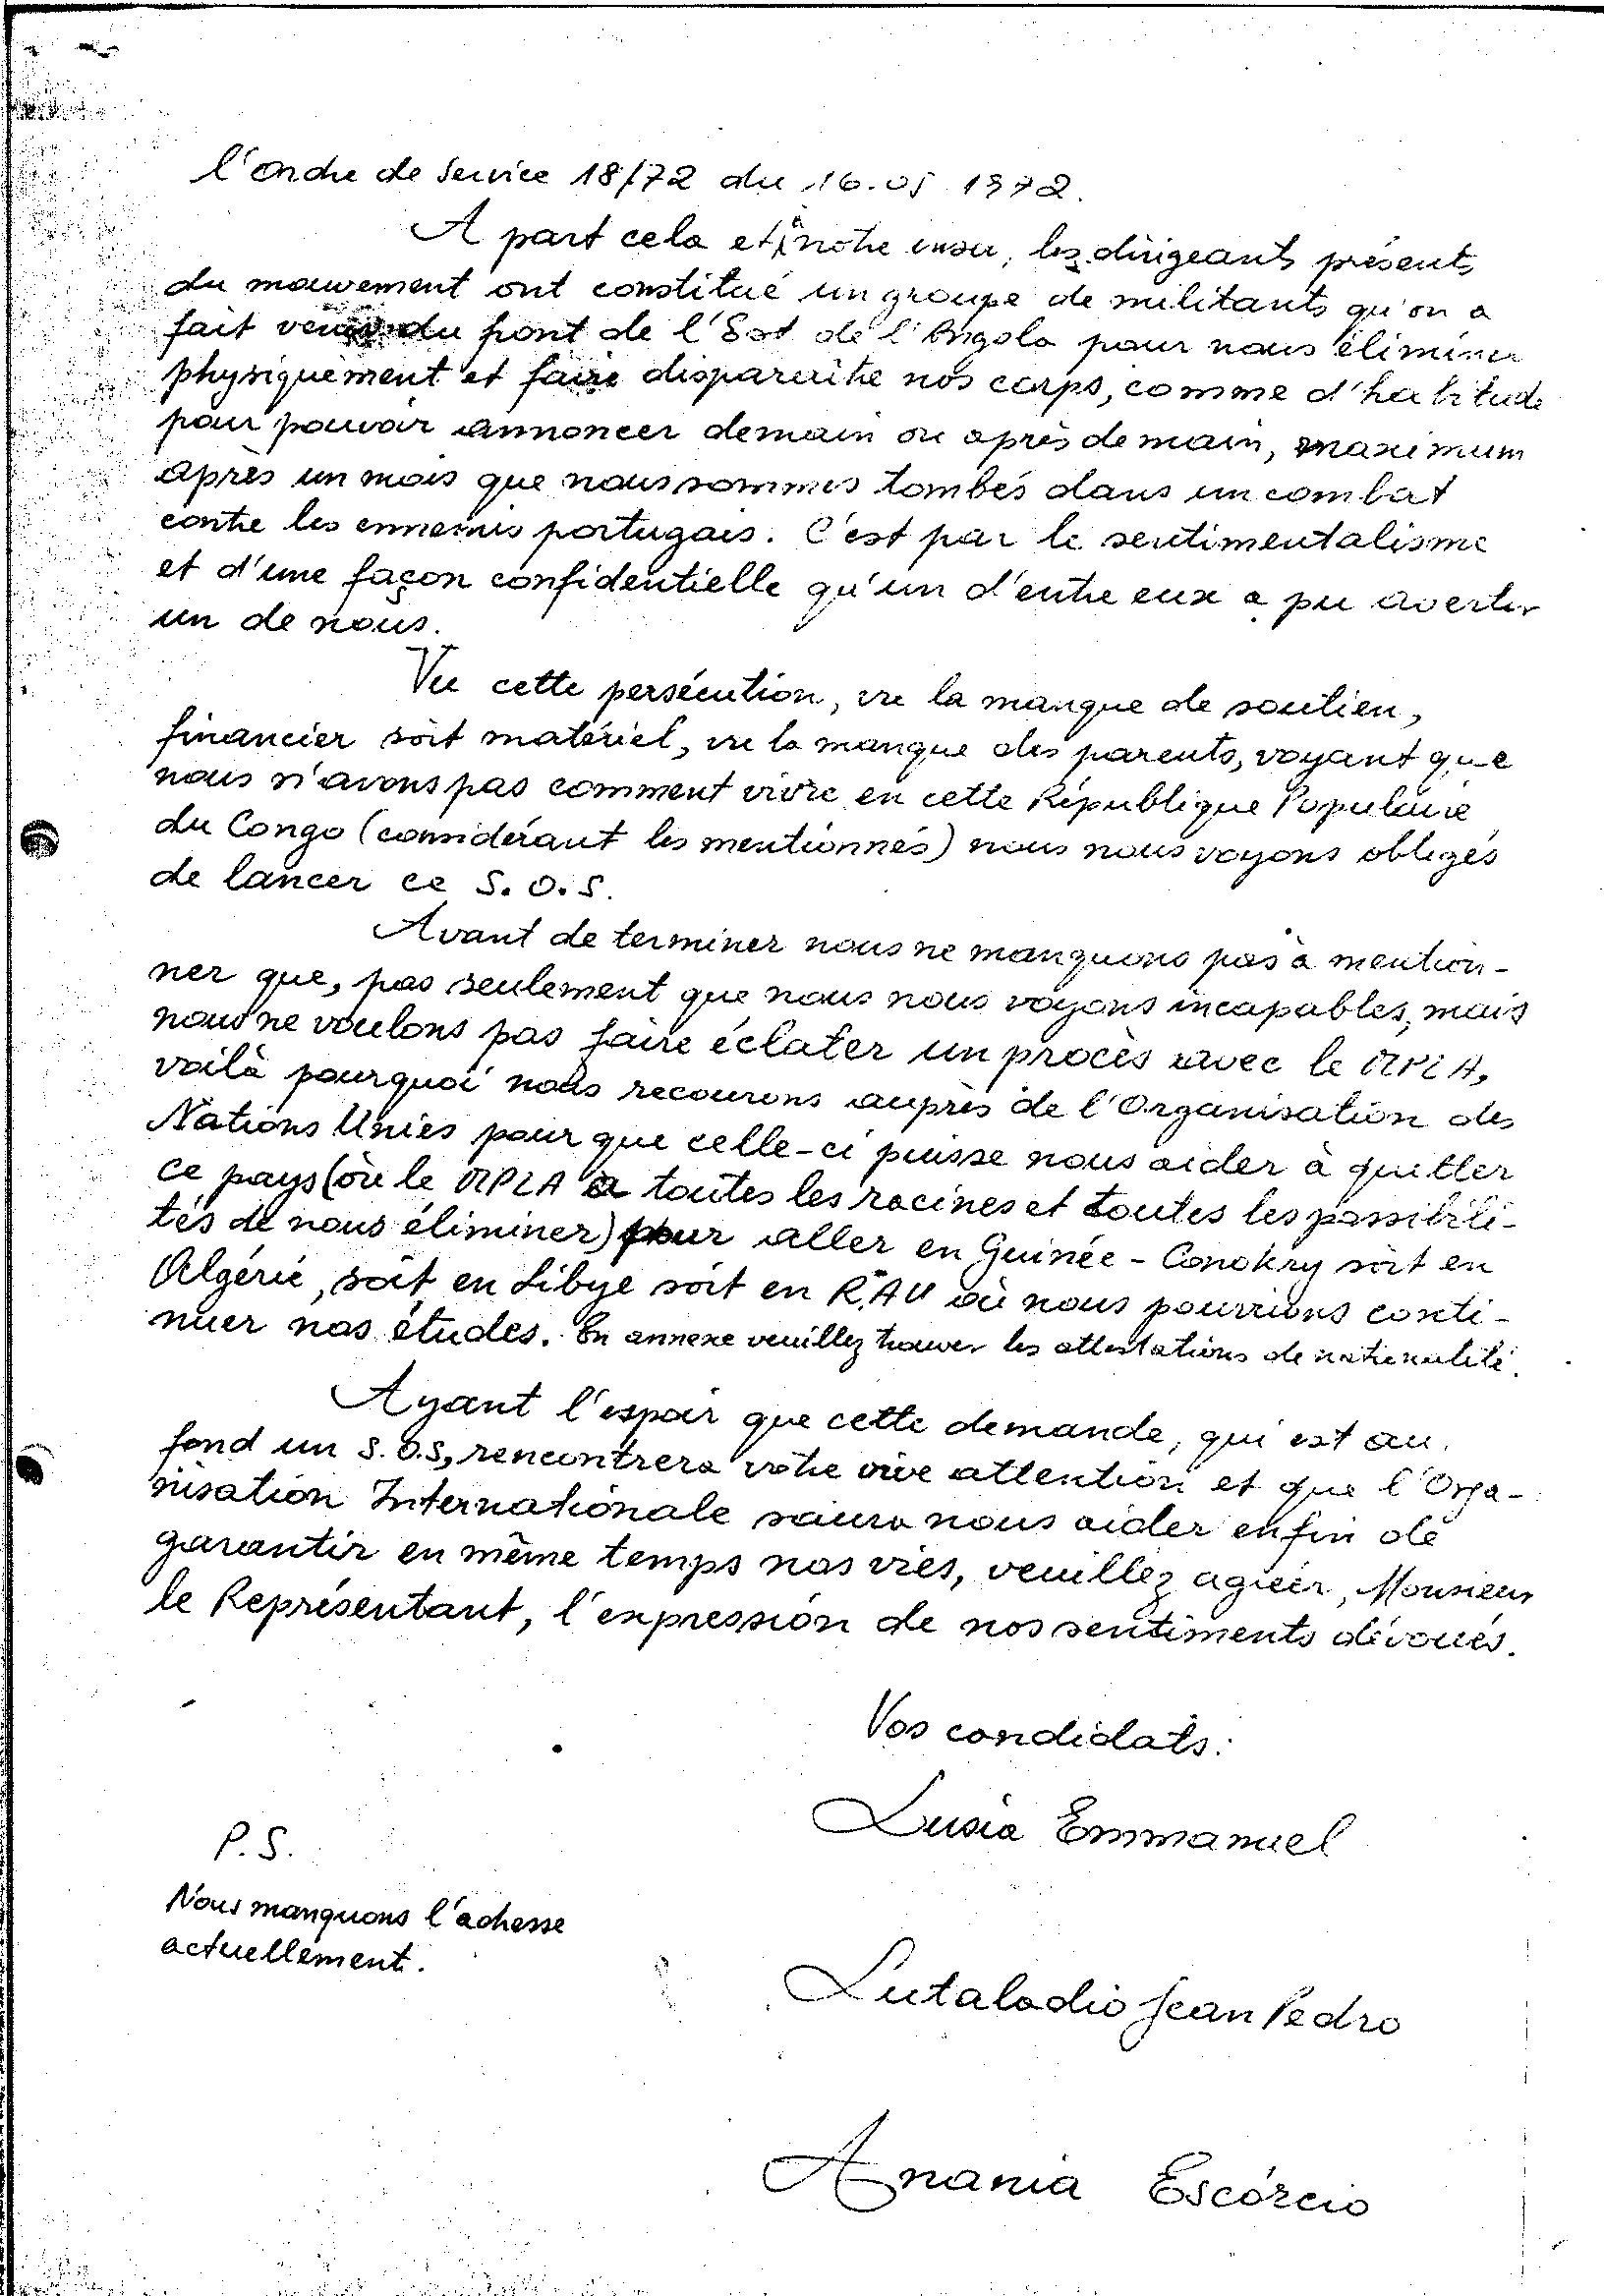 l'ordre de service 18/72 du 16.05 1972.
A part cela et à notre insu, les dirigeants présents
du mouvement ont constitué un groupe de militants qu'on a
fait venir du front de l'Est de l'Angola pour nous éliminer
physiquement et faire disparaître nos corps, comme d'habitude
pour pouvoir annoncer demain ou après demain, maximum
après un mois que nous sommes tombés dans un combat
contre les ennemis portugais. C'est par le sentimentalisme
et d'une façon confidentielle qu'un d'entre eux a pu avertir
un de nous.
Vu cette persécution, vu la manque de soutien,
financier soit matériel, vu la manque des parents, voyant que
nous n'avons pas comment vivre en cette République Populaire
du Congo (considérant les mentionnés) nous nous voyons obligés
de lancer ce S.O.S.
Avant de terminer nous ne manquons pas à mention-
ner que, pas seulement que nous nous voyons incapables, mais
nous ne voulons pas faire éclater un procès avec le MPLA,
voilà pourquoi nous recourons auprès de l'Organisation des
Nations Unies pour que celle-ci puisse nous aider à quitter
ce pays (où le MPLA a toutes les racines et toutes les possibili-
tés de nous éliminer) pour aller en Guinée-Conakry soit en
Algérie, soit en Libye soit en R.A.U où nous pourrions conti-
nuer nos études. En annexe veuillez trouver les attestations de nationalité.
Ayant l'espoir que cette demande, qui est au
fond un S.O.S, rencontrera votre vive attention et que l'Orga-
nisation Internationale saura nous aider enfin de
garantir en même temps nos vies, veuillez agréer, Monsieur
le Représentant, l'expression de nos sentiments dévoués.
Vos candidats:
Lusia Emmanuel
P.S.
Nous manquons l'adresse
actuellement.
Lutaladio Jean Pedro
Anania Escórcio